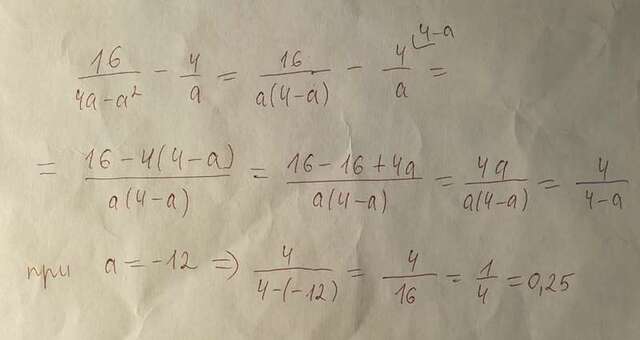 16/(4a-a²) - 4/a = 16/(a(4-a)) - 4/a ^(4-a) =
= (16-4(4-a))/(a(4-a)) = (16-16+4a)/(a(4-a)) = 4a/(a(4-a)) = 4/(4-a)
при a = -12 => 4/(4-(-12)) = 4/16 = 1/4 = 0,25